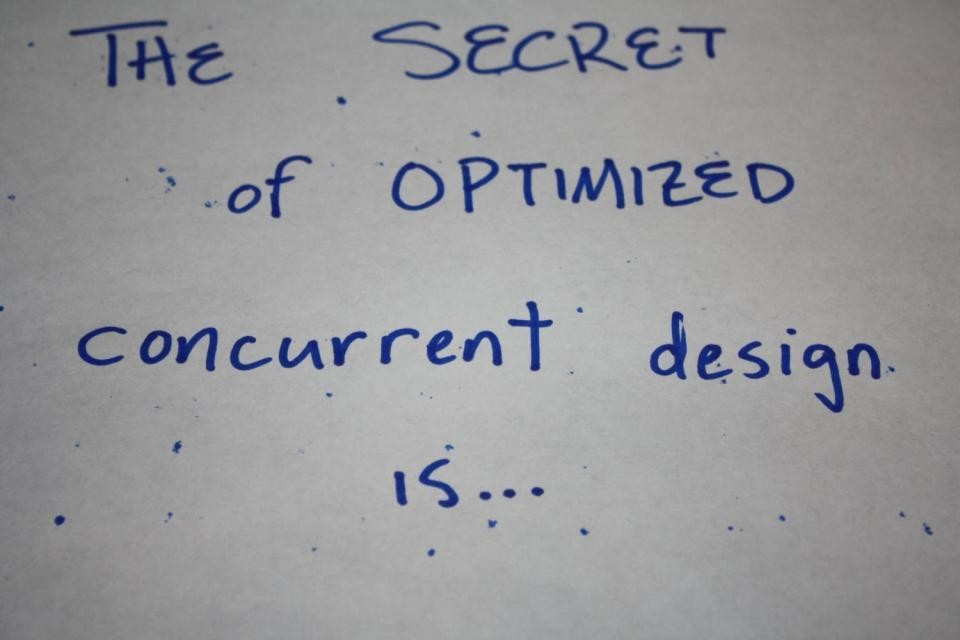 THE SECRET
of OPTIMIZED
concurrent design
is...